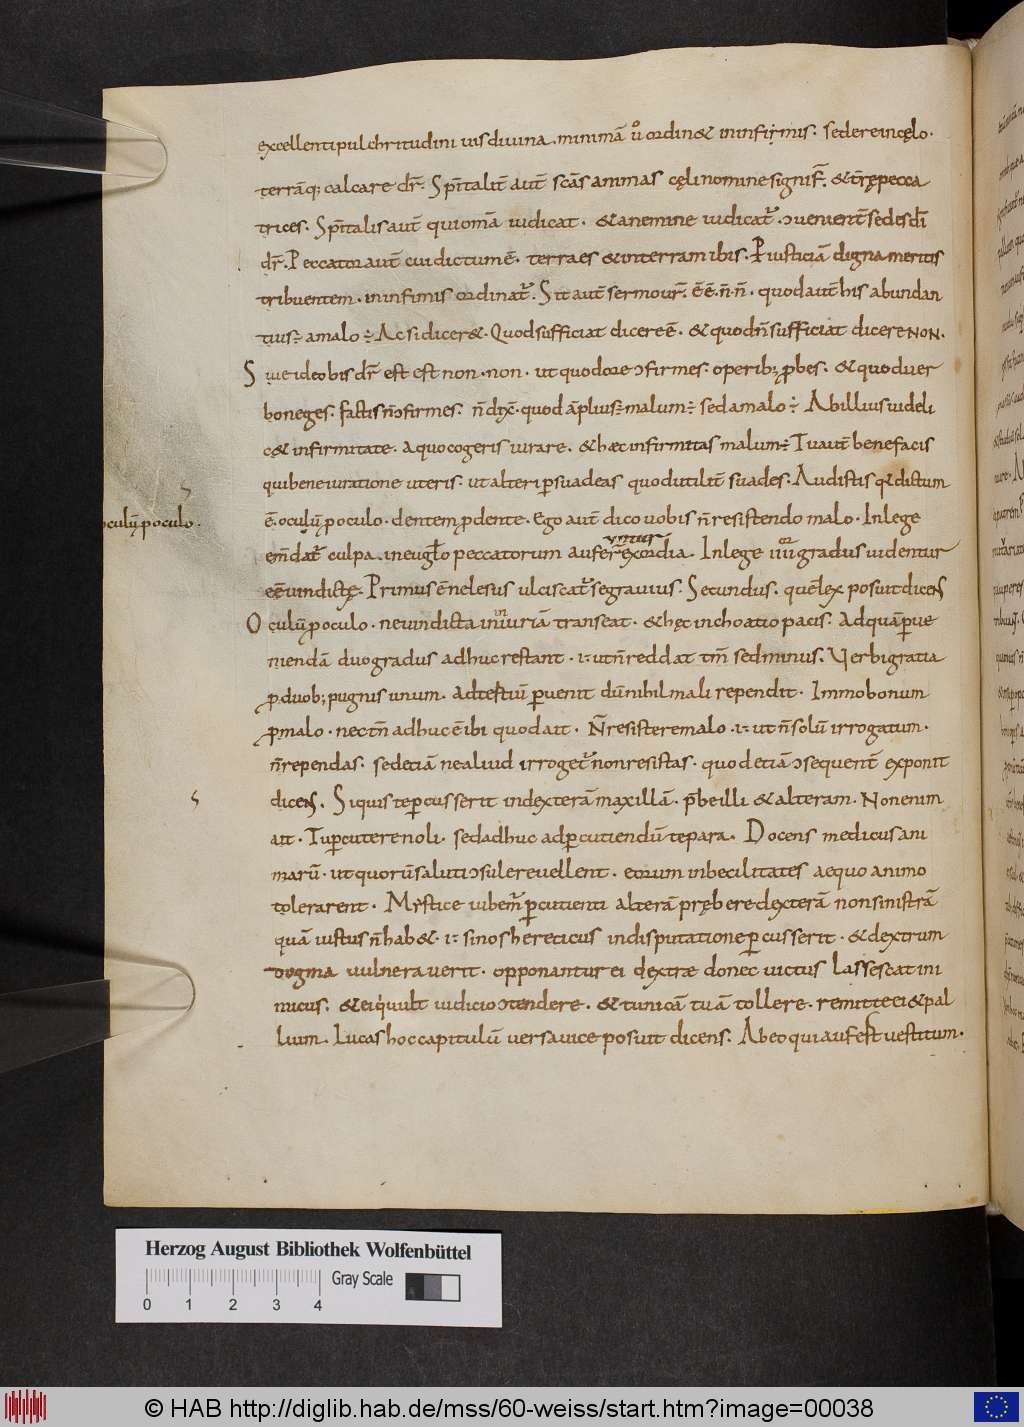 excellenti pulchritudini uis diuina. minimā ů ordin& in infirmis. sedere in cęlo.
terrāq; calcare dr̄. Sp̄italit̄ aut̄ scās animas cęli nomine signif̄. & t̄rę pecca
trices. Sp̄italis aut̄ qui om̄a iudicat. & a nemine iudicat᷒. ɔuenient̄ sedes dī
dr̄. Peccator aut̄ cui dictum ē. terra es & in terram ibis. P iusticiā digna meritis
tribuentem. in infimis ordinat᷒. Sit aut̄ sermo ur̄. ē ē. n̄ n̄. quod aut̄ his abundan
tius÷ a malo÷ Ac si dicer&. Quod sufficiat dicere ē. & quod n̄ sufficiat dicere NON.
Siue ideo bis dr̄ est est non. non. ut quod ore ɔfirmes. operib; p̄bes. & quod uer
bo neges. factis n̄ ɔfirmes. n̄ dix̄. quod āplius÷ malum÷ sed a malo÷ Ab illius uideli
c& infirmitate. a quo cogeris iurare. & hæc infirmitas malum÷ Tu aut̄ bene facis
qui bene iuratione uteris. ut alteri p̱suadeas quod utilit̄ suades. Audistis qa dictum
ē. oculū p oculo. dentem p dente. Ego aut̄ dico uobis n̄ resistendo malo. In lege
oculū p oculo.
em̄dat᷒ culpa. in eugl̄o peccatorum auferunt᷒ exordia. In lege iiiior gradus uidentur
 untur
eē uindictę. Primus ē ne lesus ulciscat᷒ se grauius. Secundus. quē lex posuit dicens
Oculū p oculo. ne uindicta in iniuriā transeat. & hęc inchoatio pacis. Ad quā p̱ue
niendā duo gradus adhuc restant. i÷ ut n̄ reddat tm̄ sed minus. Verbi gratia
p duob; pugnis unum. Ad tertiū p̱uenit dū nihil mali rependit. Immo bonum
p malo. nec tn̄ adhuc ē ibi quod ait. N̄ resistere malo. i÷ ut n̄ solū irrogatum.
n̄ rependas. sed etiā ne aliud irroget᷒ non resistas. quod etiā ɔsequent̄ exponit
dicens. Si quis te p̱cusserit in dexterā maxillā. p̄be illi & alteram. Non enim
ait. Tu p̱cutere noli. sed adhuc ad p̱cutiendū te para. Docens medicus ani
marū. ut quorū saluti ɔsulere uellent. eorum inbecilitates aequo animo
tolerarent. Mystice iubem᷒ p̱cutienti alterā prębere dexterā non sinistrā
quā iustus n̄ hab&. i÷ si nos hereticus in disputatione p̱cusserit. & dextrum
dogma uulnerauerit. opponantur ei dextræ donec uictus lassescat ini
micus. & ei qui uult iudicio ɔtendere. & tunicā tuā tollere. remitte ei & pal
lium. Lucas hoc capitulū uersa uice posuit dicens. Ab eo qui aufert uestitum.
Herzog August Bibliothek Wolfenbüttel
Gray Scale
0 1 2 3 4
© HAB http://diglib.hab.de/mss/60-weiss/start.htm?image=00038